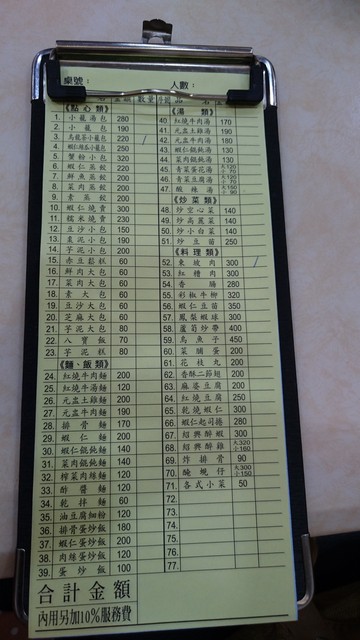 桌號： 人數：
《點心類》
1. 小籠湯包 280
2. 小籠包 190
3. 烏龍茶小籠包 220
4. 蝦仁絲瓜小籠包 250
5. 蟹粉小包 320
6. 蝦仁蒸餃 220
7. 鮮魚蒸餃 200
8. 菜肉蒸餃 200
9. 素蒸餃 200
10. 蝦仁燒賣 300
11. 糯米燒賣 230
12. 豆沙小包 150
13. 棗泥小包 190
14. 芋泥小包 200
15. 赤豆鬆糕 60
16. 鮮肉大包 60
17. 菜肉大包 60
18. 素大包 60
19. 豆沙大包 60
20. 芝麻大包 60
21. 芋泥大包 80
22. 八寶飯 70
23. 芋泥糕 80
《麵、飯類》
24. 紅燒牛肉麵 200
25. 紅燒牛湯麵 120
26. 元盅土雞麵 200
27. 元盅牛肉麵 190
28. 排骨麵 170
29. 蝦仁麵 200
30. 蝦仁餛飩麵 140
31. 菜肉餛飩麵 140
32. 榨菜肉絲麵 120
33. 酢醬麵 120
34. 乾拌麵 60
35. 油豆腐細粉 120
36. 排骨蛋炒飯 180
37. 蝦仁蛋炒飯 200
38. 肉絲蛋炒飯 120
39. 蛋炒飯 100
《湯類》
40. 紅燒牛肉湯 170
41. 元盅土雞湯 190
42. 元盅牛肉湯 180
43. 蝦仁餛飩湯 130
44. 菜肉餛飩湯 130
45. 菜豆蛋花湯 大120 小70
46. 青菜豆腐湯 大120 小70
47. 酸辣湯 大150 小90
《炒菜類》
48. 炒空心菜 140
49. 炒高麗菜 140
50. 炒小白菜 140
51. 炒豆苗 250
《料理類》
52. 東坡肉 300
53. 紅糟肉 300
54. 香腸 280
55. 彩椒牛柳 320
56. 蝦仁豆苗 350
57. 鳳梨蝦球 300
58. 蘆筍炒帶 400
59. 烏魚子 450
60. 菜脯蛋 200
61. 花枝丸 200
62. 香酥二節翅 200
63. 麻婆豆腐 200
64. 紅燒豆腐 250
65. 乾燒蝦仁 300
66. 蝦仁起司捲 280
67. 紹興醉蝦 300
68. 紹興醉雞 大320 小160
69. 炸排骨 90
70. 醃蜆仔 大300 小150
71. 各式小菜 50
72.
73.
74.
75.
76.
77.
合計金額
內用另加10%服務費